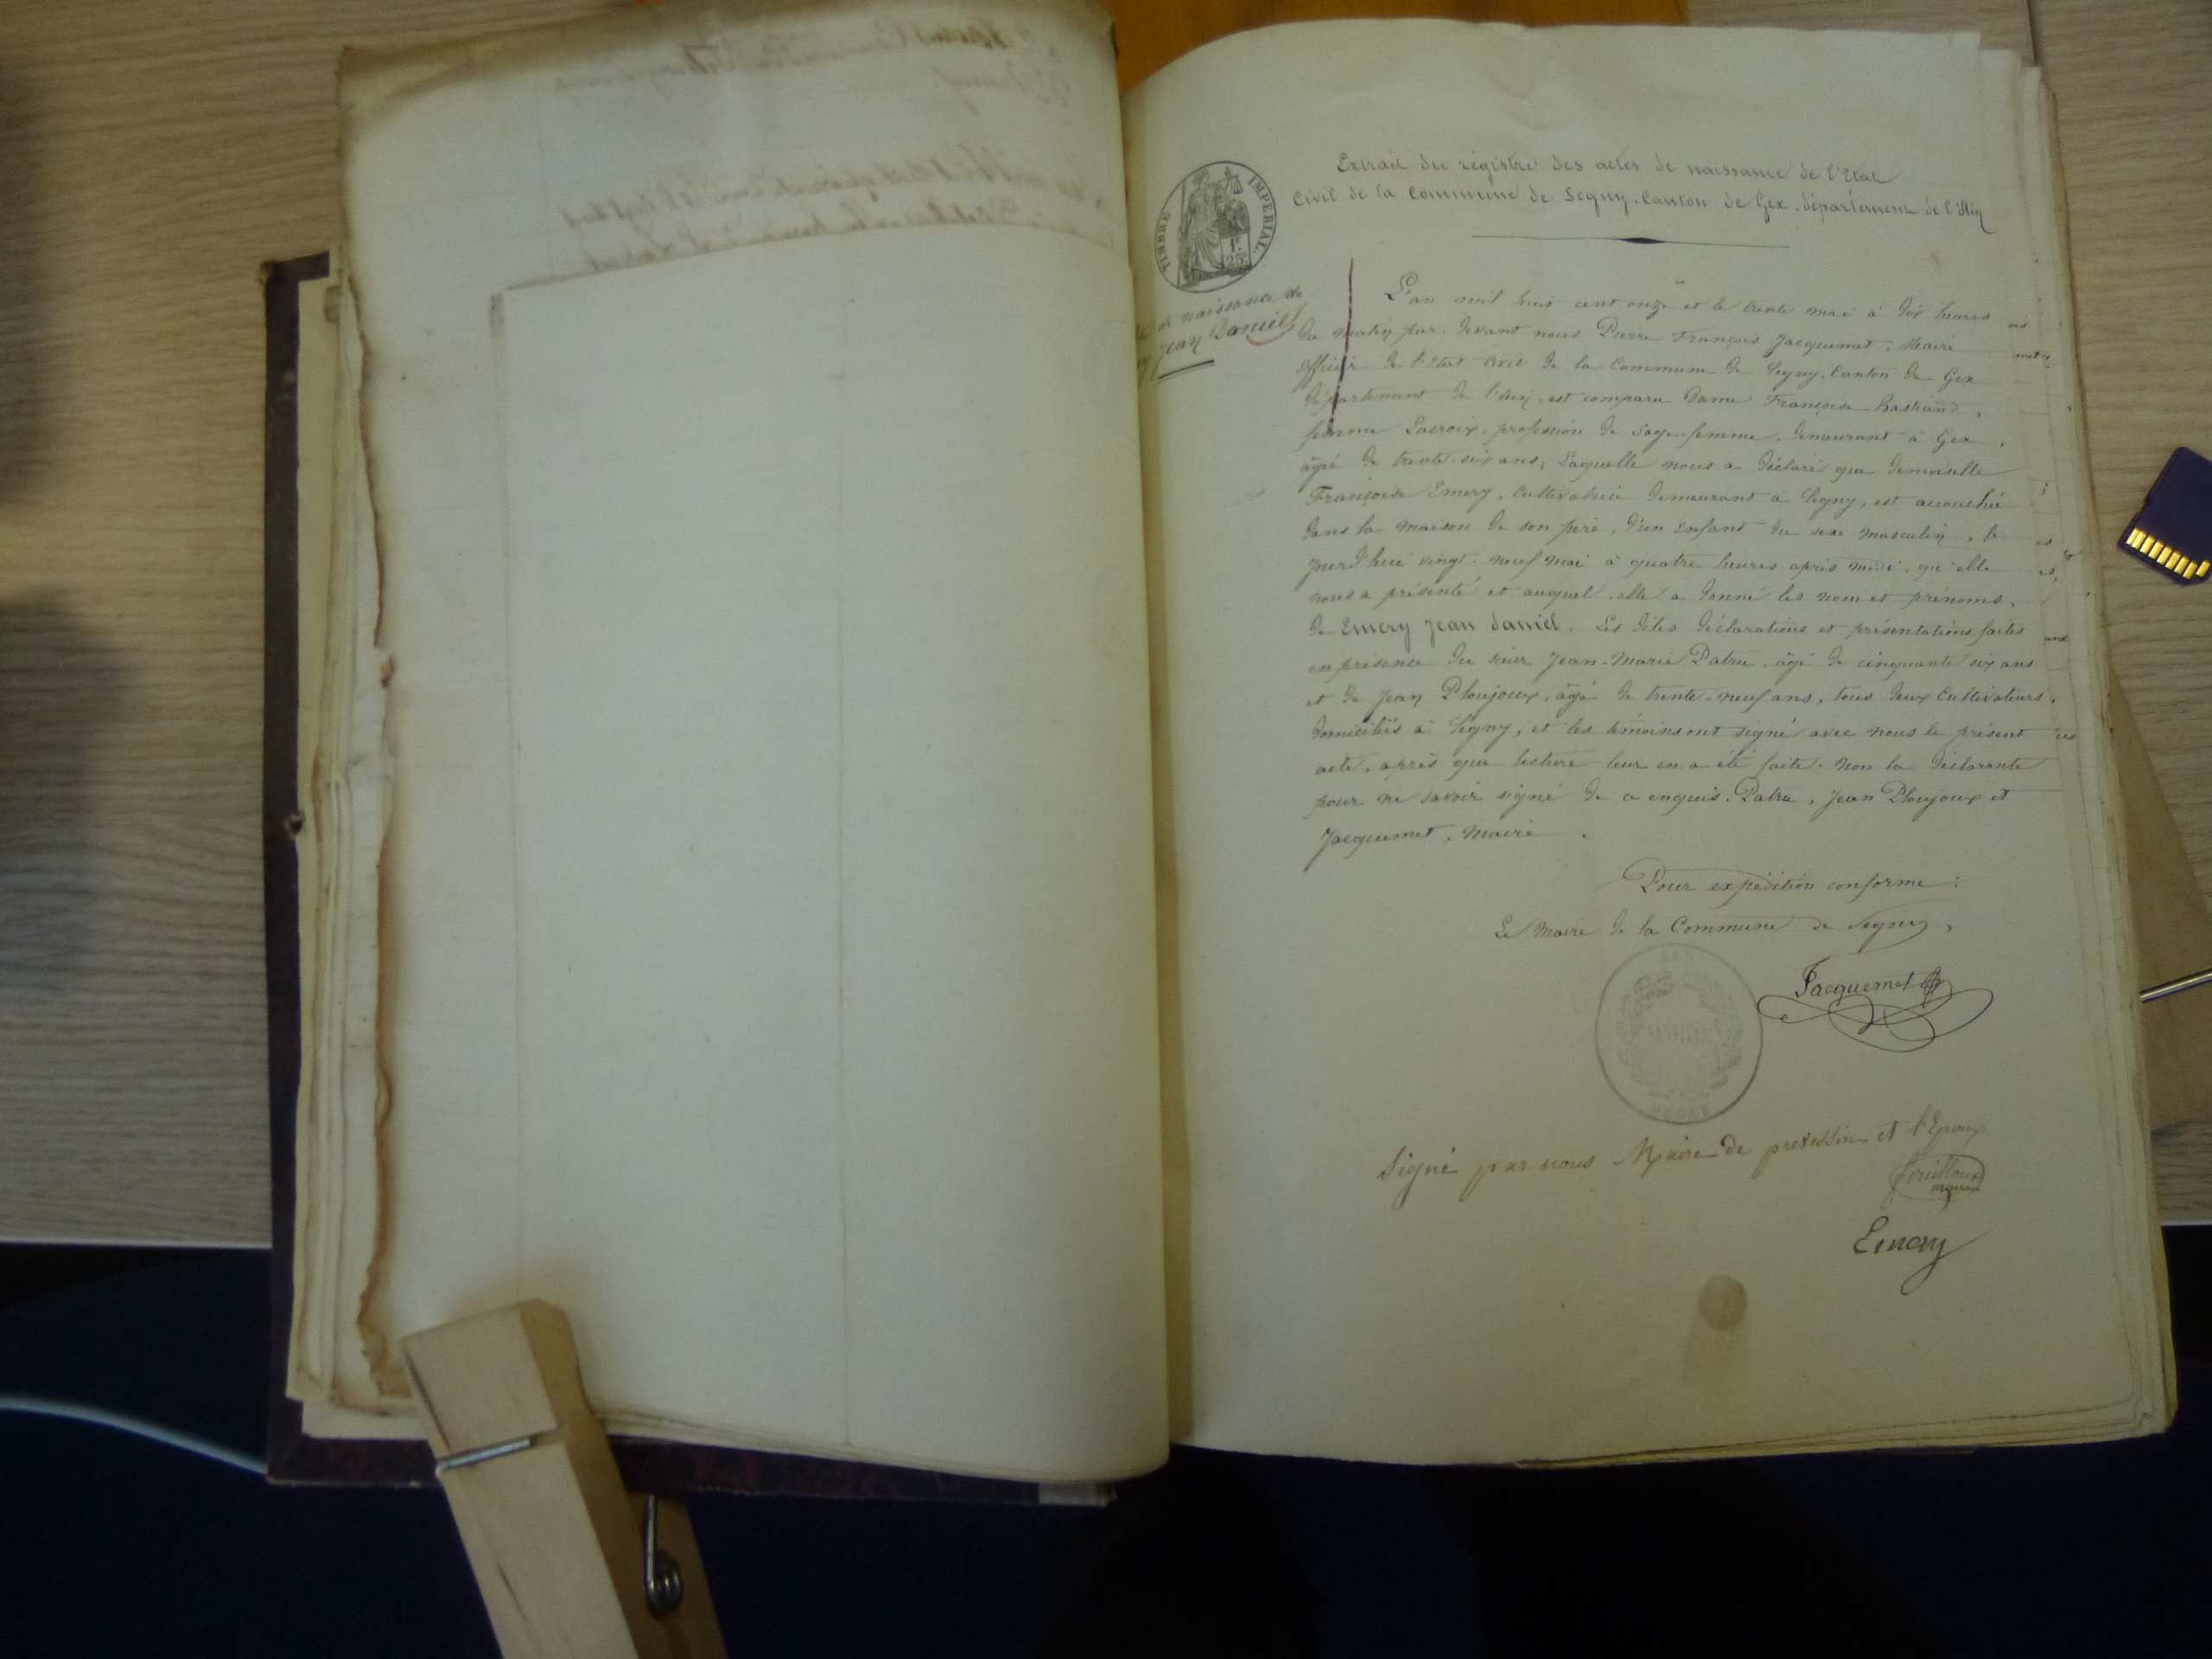 Extrait du régistre des actes de naissance de l'Etat
Civil de la Commune de Segny, Canton de Gex, département de l'Ain
TIMBRE IMPERIAL
1F.
25c.
de naissance de
Jean Daniel
L'an mil huit cent onze et le trente mai à dix heures
du matin par devant nous Pierre François Jacquemet, Maire
officier de l'Etat Civil de la Commune de Segny, Canton de Gex
département de l'Ain, est comparu Dame Françoise Bastian,
femme Lacroix, profession de Sage-femme, demeurant à Gex,
âgée de trente-six ans, Laquelle nous a déclaré que demoiselle
Françoise Emery, Cultivatrice demeurant à Segny, est accouchée
dans la maison de son père, d'un enfant du sexe masculin, le
jourd'hui vingt-neuf mai à quatre heures après midi, qu'elle
nous a présenté et auquel elle a donné les nom et prénoms,
de Emery Jean Daniel. Les dites déclarations et présentations faites
en présence du sieur Jean-Marie Patru, âgé de cinquante six ans
et de Jean Ploujoux, âgé de trente-neuf ans, tous deux Cultivateurs,
domiciliés à Segny, et les témoins ont signé avec nous le présent
acte, après que lecture leur en a été faite. Non la déclarante
pour ne savoir signé de ce enquis. Patru, Jean Ploujoux et
Jacquemet, Maire.
Pour expédition conforme:
Le Maire de la Commune de Segny,
Jacquemet
AIN
MAIRIE
SEGNY
Signé par nous Maire de prevessin et l'Epoux
Fouilloux
maire
Emery